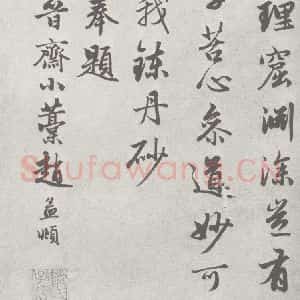 理窟渊深有
苦心参道妙可
我鍊丹砂
奉題
晉齋小藁趙孟頫
Shufawang.CN